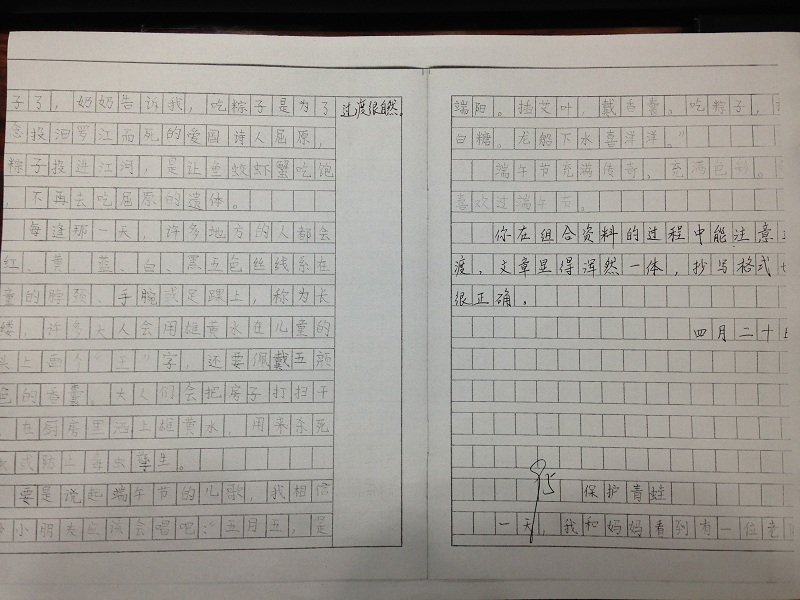 子了，奶奶告诉我，吃粽子是为了
念投汨罗江而死的爱国诗人屈原，
粽子投进江河，是让鱼蛟虾蟹吃饱
，不再去吃屈原的遗体。
每逢那一天，许多地方的人都会
红、黄、蓝、白、黑五色丝线系在
童的脖颈、手腕或足踝上，称为长
缕，许多大人会用雄黄水在儿童的
头上画个"王"字，还要佩戴五颜
色的香囊，大人们会把房子打扫干
，在厨房里洒上雄黄水，用来杀死
虫或防止毒虫孳生。
要是说起端午节的儿歌，我相信
小朋友应该会唱吧："五月五，是
过渡很自然。
端阳。插艾叶，戴香囊，吃粽子，
白糖。龙船下水喜洋洋。"
端午节充满传奇，充满色彩。
喜欢过端午节。
你在组合资料的过程中能注意
渡，文章显得浑然一体，抄写格式
很正确。
四月二十
95
保护青蛙
一天，我和妈妈看到有一位